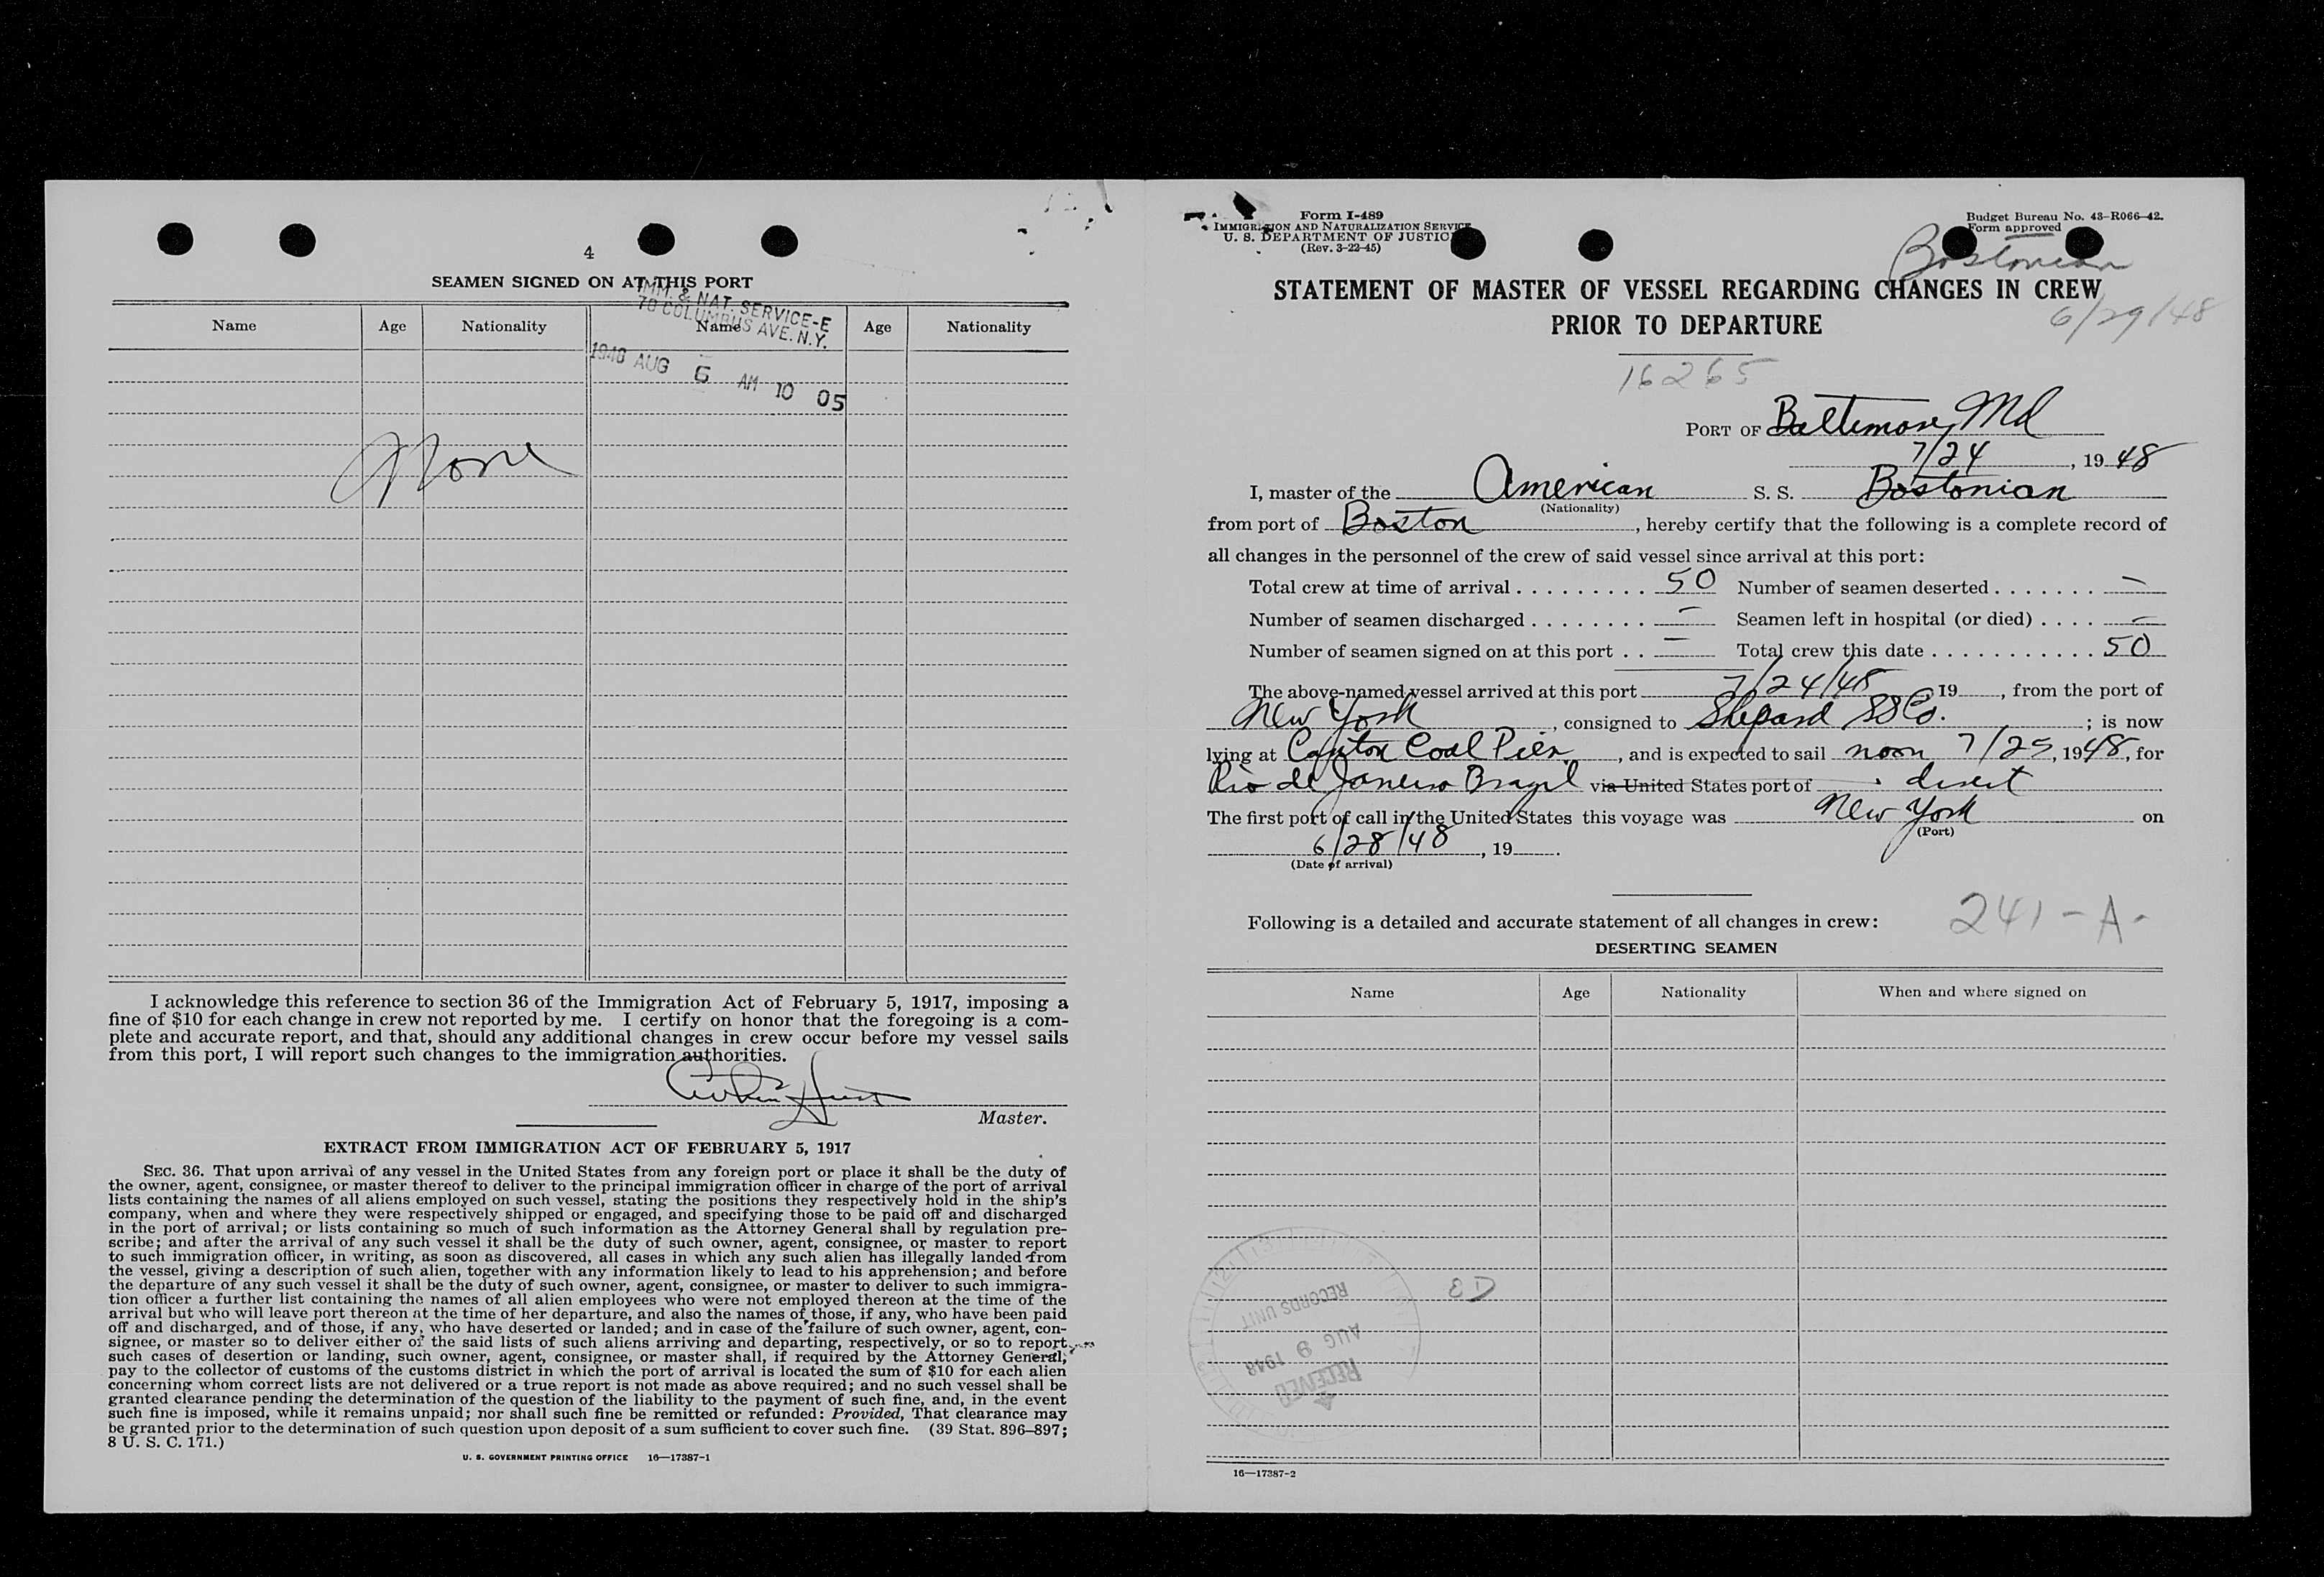 4
SEAMEN SIGNED ON AT THIS PORT
IMM. & NAT. SERVICE-E
70 COLUMBUS AVE. N.Y.
Name Age Nationality Name Age Nationality
AUG 6 AM 10 05
None
I acknowledge this reference to section 36 of the Immigration Act of February 5, 1917, imposing a
fine of $10 for each change in crew not reported by me. I certify on honor that the foregoing is a com-
plete and accurate report, and that, should any additional changes in crew occur before my vessel sails
from this port, I will report such changes to the immigration authorities.
Master.
EXTRACT FROM IMMIGRATION ACT OF FEBRUARY 5, 1917
SEC. 36. That upon arrival of any vessel in the United States from any foreign port or place it shall be the duty of
the owner, agent, consignee, or master thereof to deliver to the principal immigration officer in charge of the port of arrival
lists containing the names of all aliens employed on such vessel, stating the positions they respectively hold in the ship's
company, when and where they were respectively shipped or engaged, and specifying those to be paid off and discharged
in the port of arrival; or lists containing so much of such information as the Attorney General shall by regulation pre-
scribe; and after the arrival of any such vessel it shall be the duty of such owner, agent, consignee, or master to report
to such immigration officer, in writing, as soon as discovered, all cases in which any such alien has illegally landed from
the vessel, giving a description of such alien, together with any information likely to lead to his apprehension; and before
the departure of any such vessel it shall be the duty of such owner, agent, consignee, or master to deliver to such immigra-
tion officer a further list containing the names of all alien employees who were not employed thereon at the time of the
arrival but who will leave port thereon at the time of her departure, and also the names of those, if any, who have been paid
off and discharged, and of those, if any, who have deserted or landed; and in case of the failure of such owner, agent, con-
signee, or master so to deliver either of the said lists of such aliens arriving and departing, respectively, or so to report
such cases of desertion or landing, such owner, agent, consignee, or master shall, if required by the Attorney General,
pay to the collector of customs of the customs district in which the port of arrival is located the sum of $10 for each alien
concerning whom correct lists are not delivered or a true report is not made as above required; and no such vessel shall be
granted clearance pending the determination of the question of the liability to the payment of such fine, and, in the event
such fine is imposed, while it remains unpaid; nor shall such fine be remitted or refunded: Provided, That clearance may
be granted prior to the determination of such question upon deposit of a sum sufficient to cover such fine. (39 Stat. 896–897;
8 U. S. C. 171.)
U. S. GOVERNMENT PRINTING OFFICE 16—17387-1
Form I-489
IMMIGRATION AND NATURALIZATION SERVICE
U. S. DEPARTMENT OF JUSTICE
(Rev. 3-22-45)
Budget Bureau No. 43-R066-42.
Form approved
Bostonian
STATEMENT OF MASTER OF VESSEL REGARDING CHANGES IN CREW
PRIOR TO DEPARTURE
6/29/48
16265
PORT OF Baltimore, Md
7/24, 1948
I, master of the American S. S. Bostonian
(Nationality)
from port of Boston, hereby certify that the following is a complete record of
all changes in the personnel of the crew of said vessel since arrival at this port:
Total crew at time of arrival . . . . . . . . . 50 Number of seamen deserted . . . . . . . —
Number of seamen discharged . . . . . . . . — Seamen left in hospital (or died) . . . . —
Number of seamen signed on at this port . . — Total crew this date . . . . . . . . . . . 50
The above-named vessel arrived at this port 7/24/48, 19, from the port of
New York, consigned to Shepard SS Co.; is now
lying at Canton Coal Pier, and is expected to sail noon 7/25, 1948, for
Rio de Janeiro Brazil via United States port of direct
The first port of call in the United States this voyage was New York on
(Port)
6/28/48, 19.
(Date of arrival)
Following is a detailed and accurate statement of all changes in crew:
241-A-
DESERTING SEAMEN
Name Age Nationality When and where signed on
RECEIVED
AUG 9 1948
RECORDS UNIT
16—17387-2